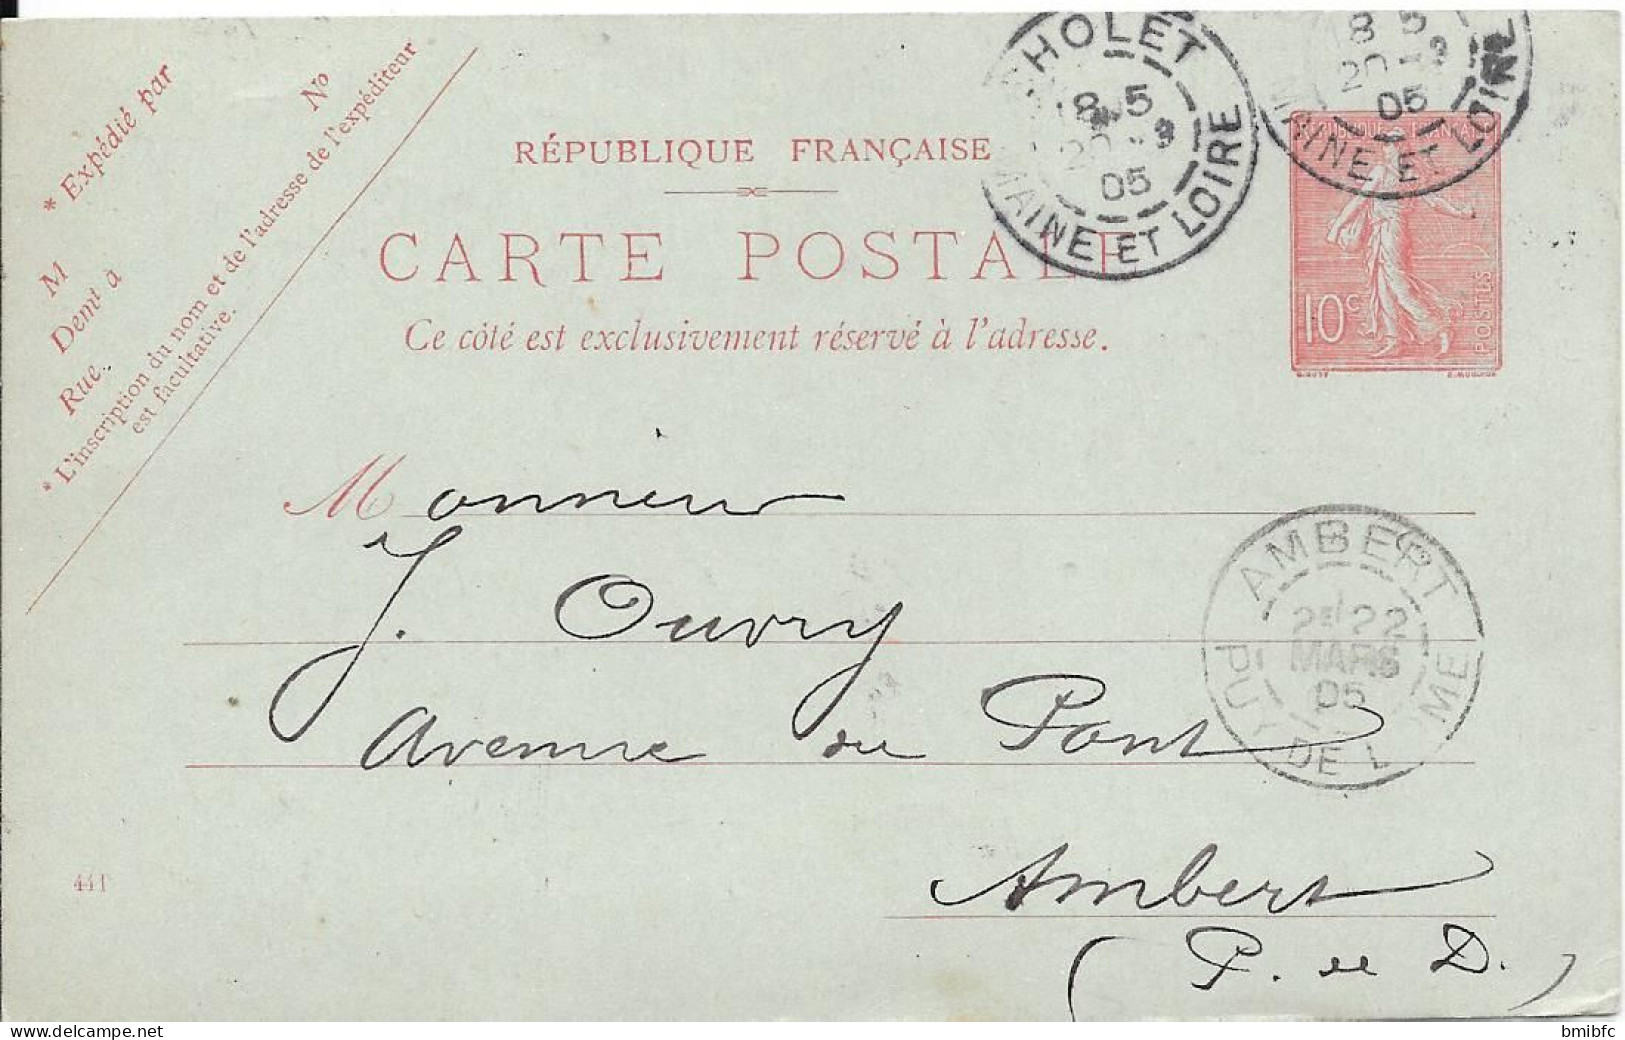 * Expédié par
M
Demt à
Rue
No
* L'inscription du nom et de l'adresse de l'expéditeur
est facultative.
RÉPUBLIQUE FRANÇAISE
CARTE POSTALE
Ce côté est exclusivement réservé à l'adresse.
CHOLET
8 5
20 -3
05
MAINE ET LOIRE
8 5
20 -3
05
MAINE ET LOIRE
10c
POSTES
Monsieur
J. Ouvry
Avenue du Pont
Ambert
(P. de D.)
AMBERT
2E 22
MARS
05
PUY DE DOME
441
bmibfc